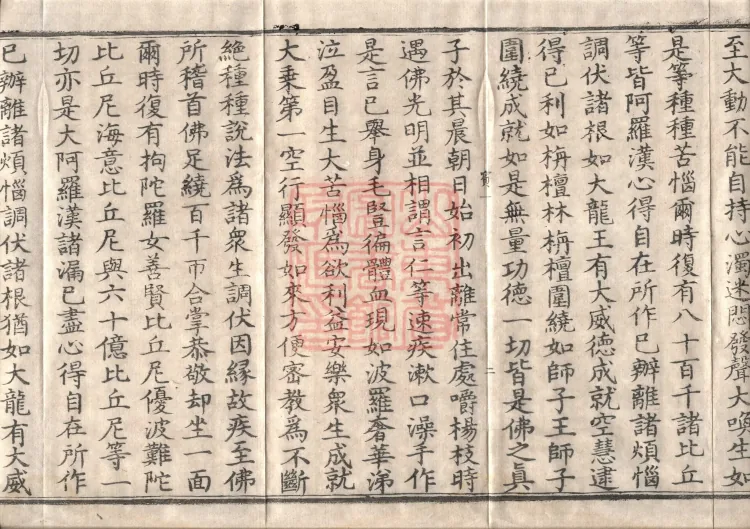 至大動不能自持心濁迷悶發聲大喚生如
是等種種苦惱爾時復有八十百千諸比丘
等皆阿羅漢心得自在所作已辦離諸煩惱
調伏諸根如大龍王有大威德成就空慧逮
得已利如栴檀林栴檀圍繞如師子王師子
圍繞成就如是無量功德一切皆是佛之真
子於其晨朝日始初出離常住處嚼楊枝時
遇佛光明並相謂言仁等速疾漱口澡手作
是言已舉身毛豎徧體血現如波羅奢華涕
泣盈目生大苦惱爲欲利益安樂衆生成就
大乘第一空行顯發如來方便密教爲不斷
絶種種說法爲諸衆生調伏因緣故疾至佛
所稽首佛足繞百千帀合掌恭敬却坐一面
爾時復有拘陀羅女善賢比丘尼優波難陀
比丘尼海意比丘尼與六十億比丘尼等一
切亦是大阿羅漢諸漏已盡心得自在所作
已辦離諸煩惱調伏諸根猶如大龍有大威